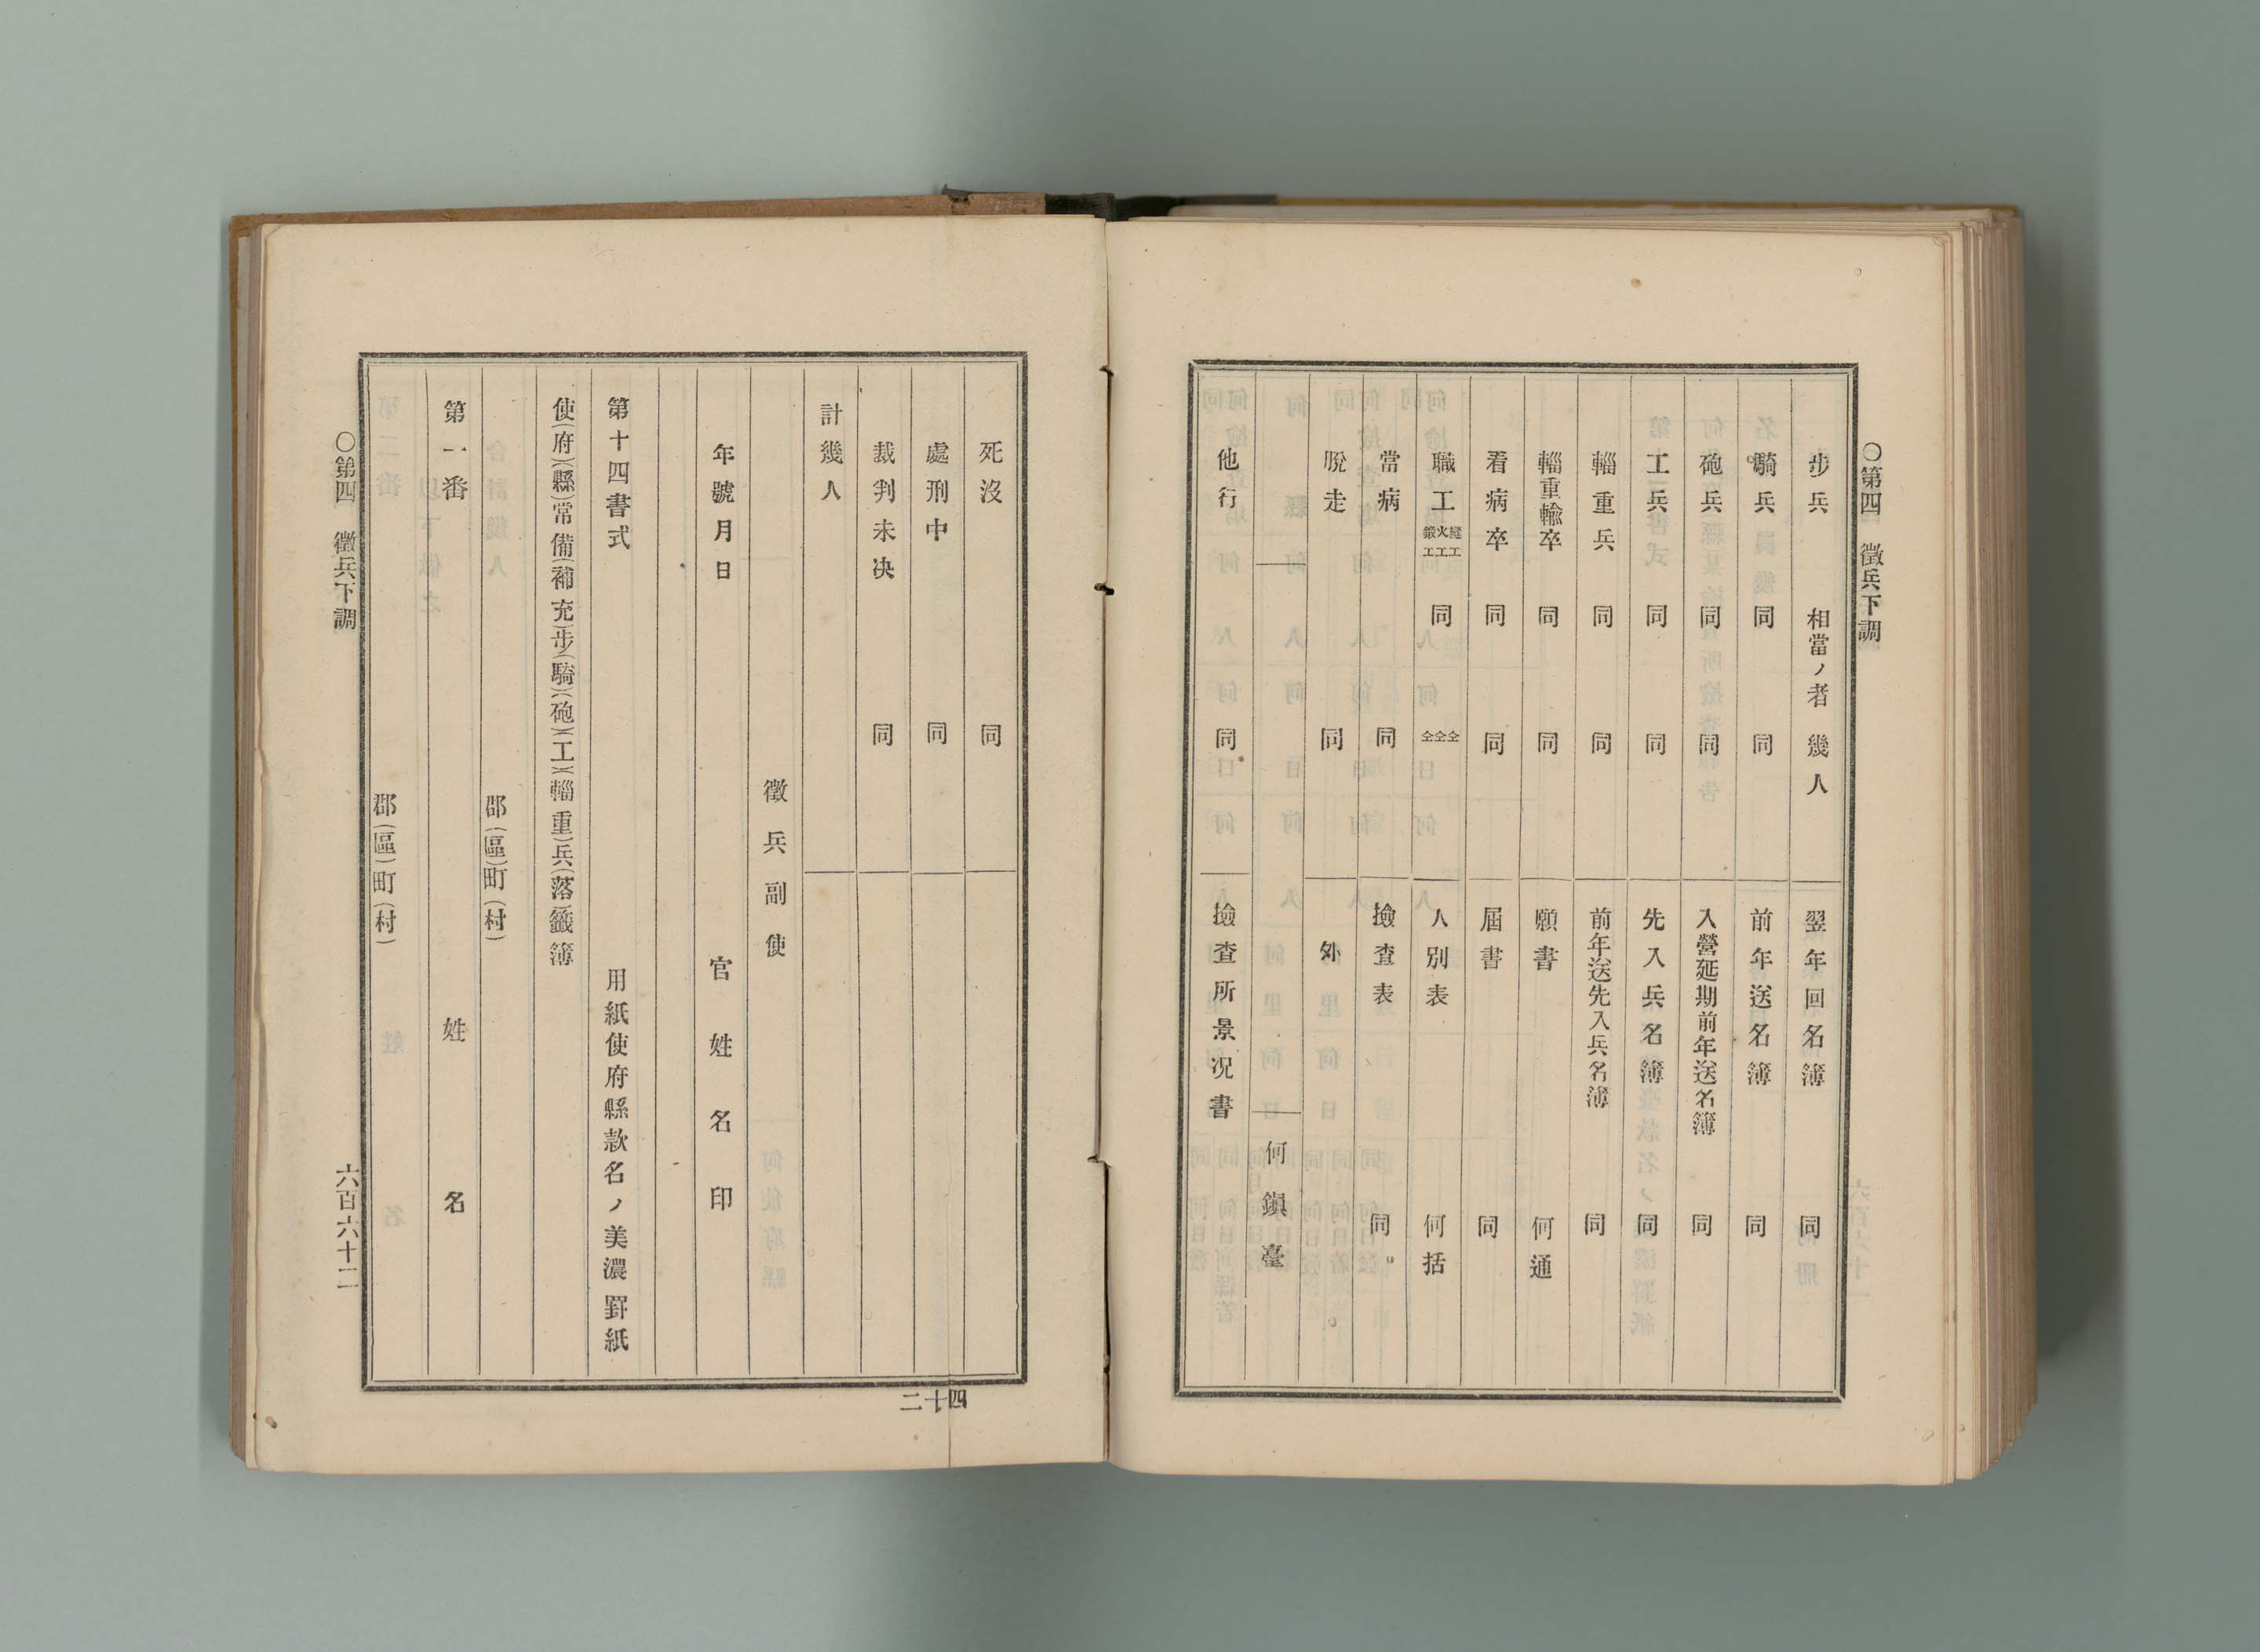 〇第四　徵兵下調
步兵　相當ノ者　幾人　翌年回名簿　同
騎兵　同　同　前年送名簿　同
砲兵　同　同　入營延期前年送名簿　同
工兵　同　同　先入兵名簿　同
輜重兵　同　同　前年送先入兵名簿　同
輜重輸卒　同　同　願書　何通
看病卒　同　同　屆書　同
職工　縫工　火工　鍛工　同　仝仝仝　人別表　何括
當病　同　撿查表　同
脫走　同　外
何鎭臺
他行　同　撿查所景况書
死沒　同
處刑中　同
裁判未决　同
計幾人
徵兵副使
年號月日　官姓名印
第十四書式　用紙使府縣款名ノ美濃罫紙
使(府)(縣)常備(補充)步(騎)(砲)(工)(輜重)兵(落)籤簿
郡(區)町(村)
第一番　姓名
郡(區)町(村)
〇第四　徵兵下調　六百六十二
四十二